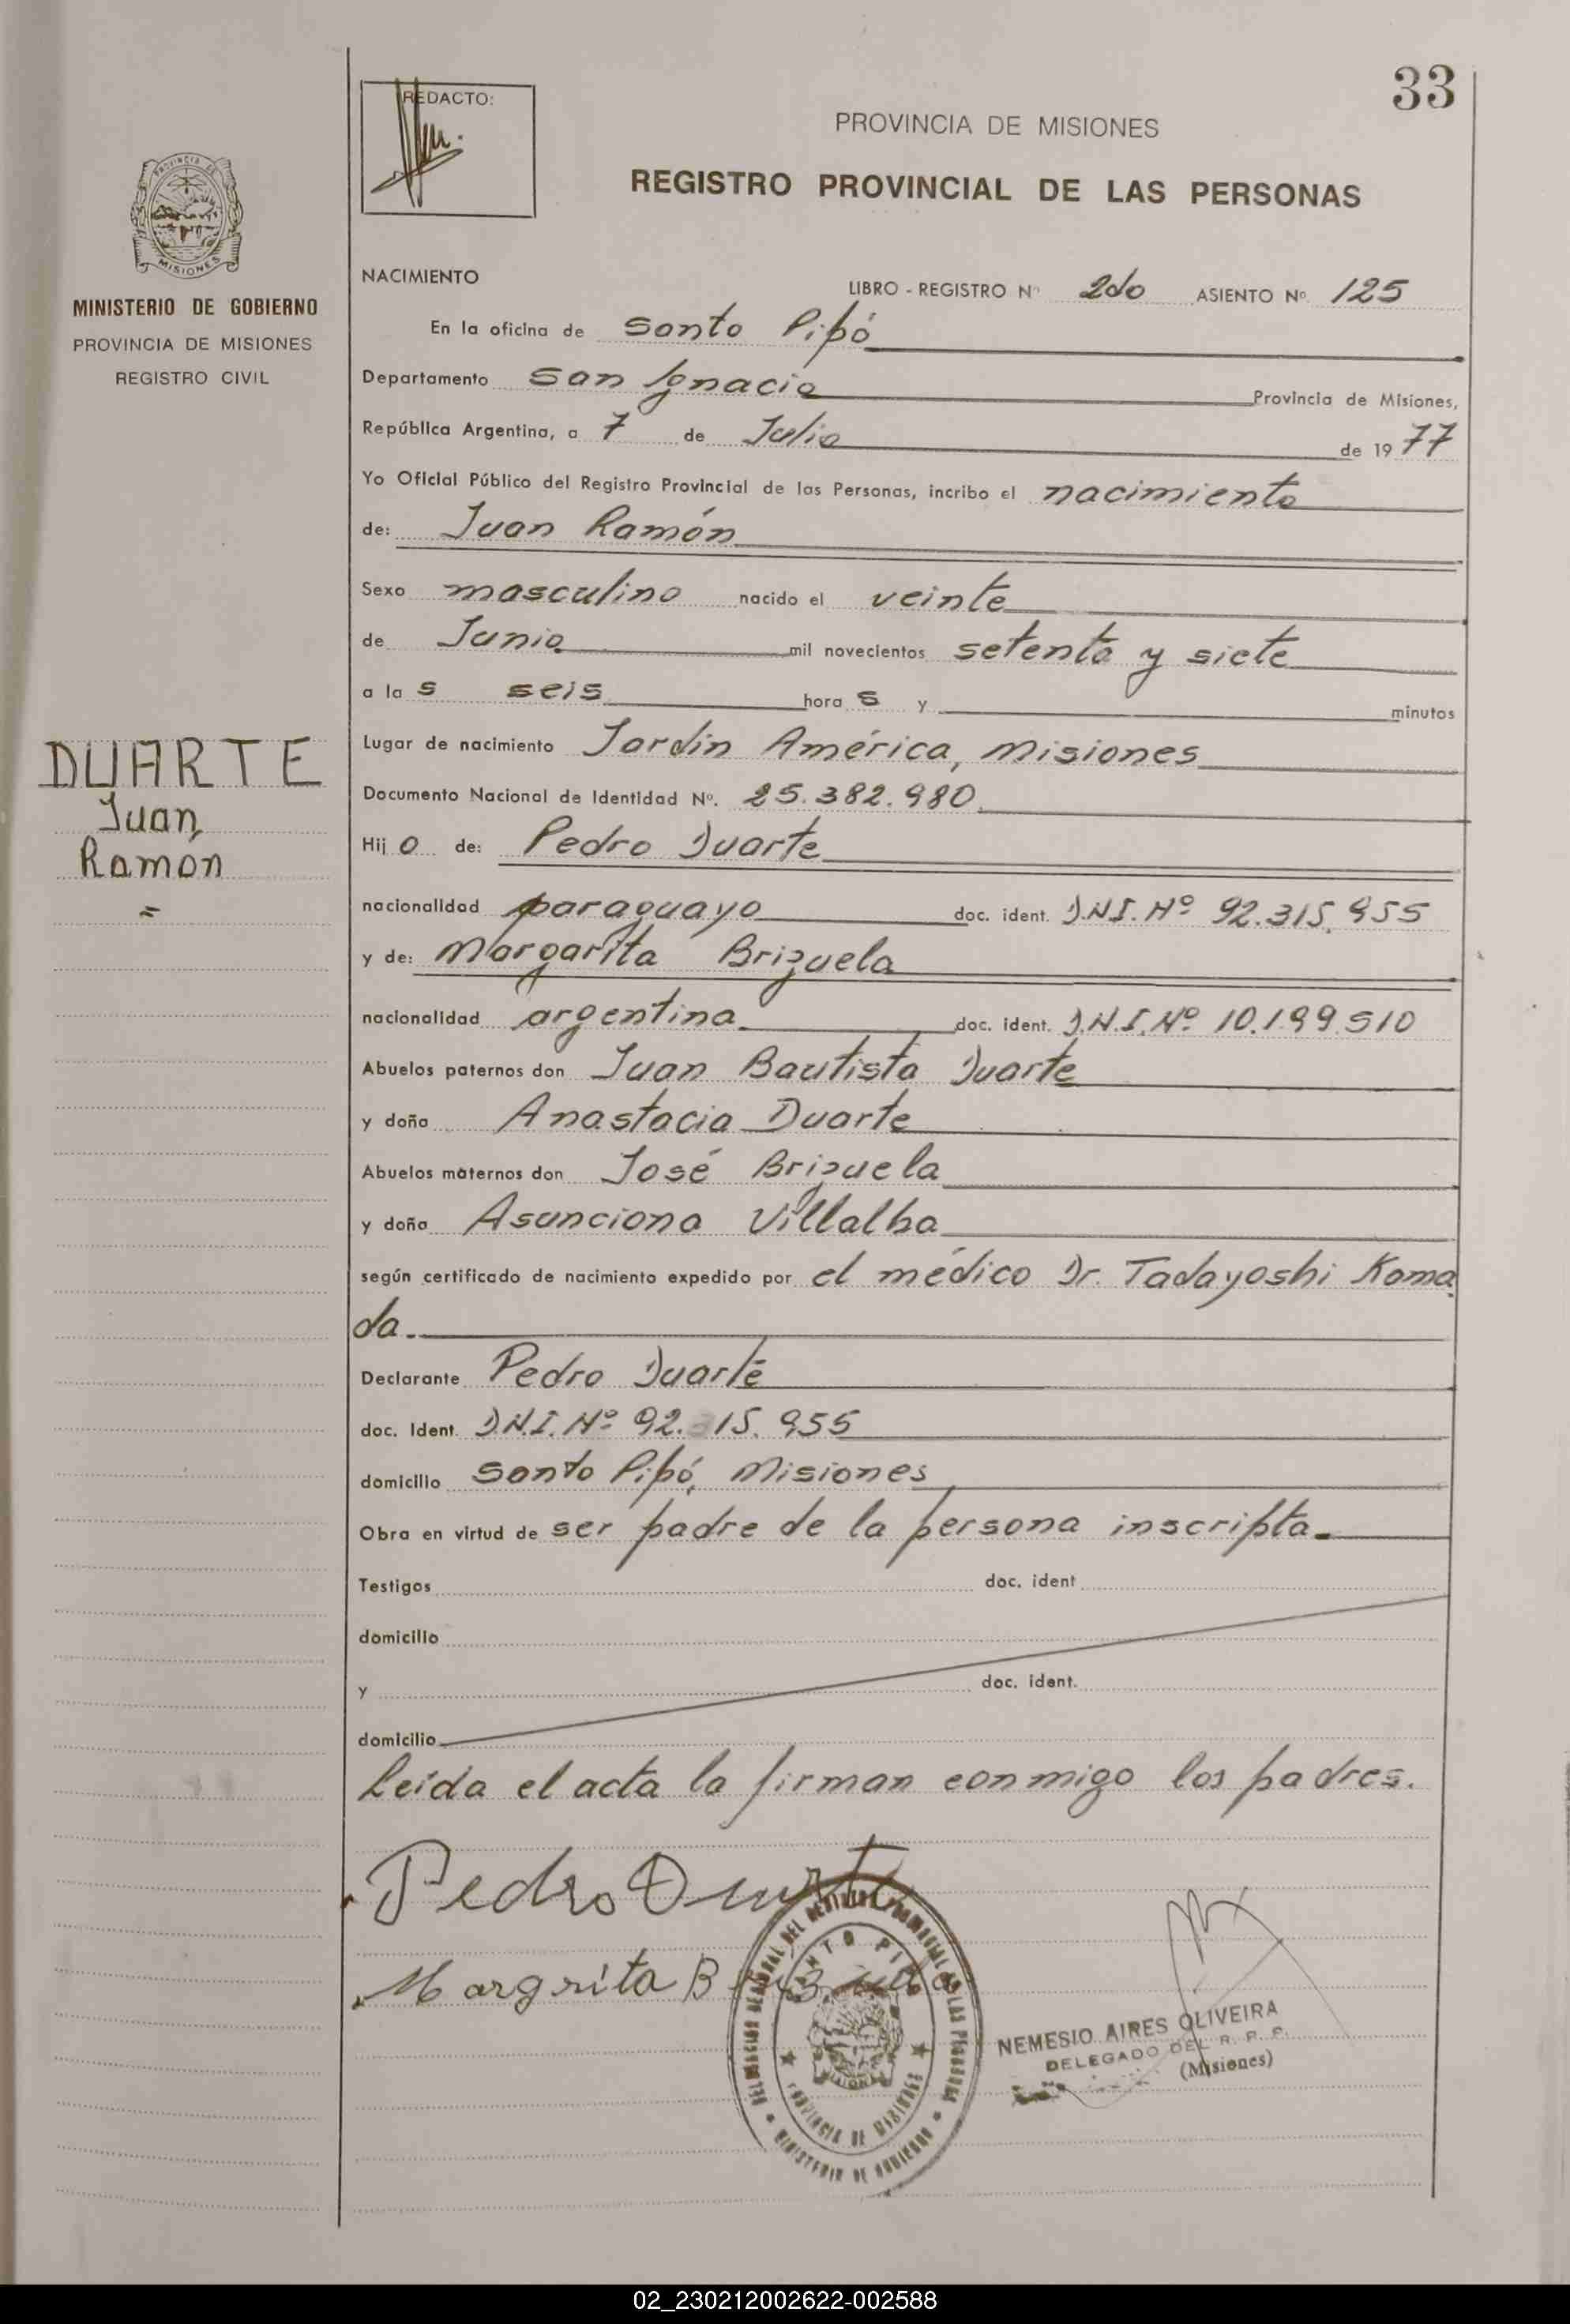 33
REDACTO:
PROVINCIA DE MISIONES
REGISTRO PROVINCIAL DE LAS PERSONAS
PROVINCIA DE
MISIONES
MINISTERIO DE GOBIERNO
PROVINCIA DE MISIONES
REGISTRO CIVIL
NACIMIENTO
LIBRO - REGISTRO Nº 2do ASIENTO Nº 125
En la oficina de Santo Pipó
Departamento San Ignacio Provincia de Misiones,
República Argentina, a 7 de Julio de 1977
Yo Oficial Público del Registro Provincial de las Personas, incribo el nacimiento
de: Juan Ramón
Sexo masculino nacido el veinte
de Junio mil novecientos setenta y siete
a las seis horas y minutos
DUARTE
Juan
Ramón
=
Lugar de nacimiento Jardín América, Misiones
Documento Nacional de Identidad Nº. 25.382.980
Hijo de: Pedro Duarte
nacionalidad paraguayo doc. ident. D.N.I. Nº 92.315.955
y de: Margarita Brizuela
nacionalidad argentina doc. ident. D.N.I. Nº 10.199.510
Abuelos paternos don Juan Bautista Duarte
y doña Anastacia Duarte
Abuelos maternos don José Brizuela
y doña Asunciona Villalba
según certificado de nacimiento expedido por el médico Dr. Tadayoshi Koma
da.
Declarante Pedro Duarte
doc. Ident. D.N.I. Nº 92.315.955
domicilio Santo Pipó, Misiones
Obra en virtud de ser padre de la persona inscripta.
Testigos doc. ident
domicilio
y doc. ident.
domicilio
Leída el acta la firman conmigo los padres.
Pedro Duarte
Margrita Brizuela
DELEGACION DEL REGISTRO PROVINCIAL DE LAS PERSONAS
SANTO PIPO
PROVINCIA DE MISIONES
MINISTERIO DE GOBIERNO
NEMESIO AIRES OLIVEIRA
DELEGADO DEL R. P. P.
(Misiones)
02_230212002622-002588